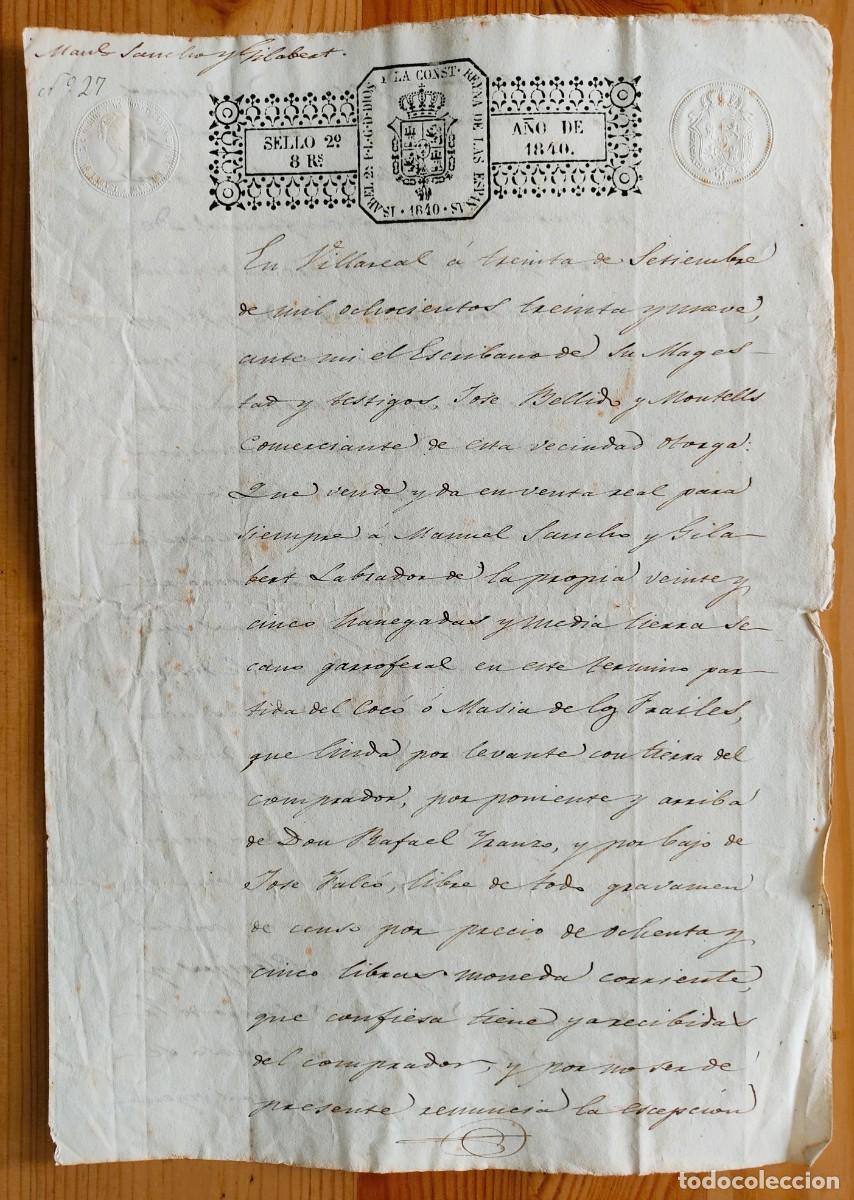 Manl. Sancho y Gilabert.
Nº 27
ISABEL 2ª P. L. G. D. DIOS Y LA CONST. REINA DE LAS ESPAÑAS
1840
SELLO 2º
8 Rs
AÑO DE
1840.
En Villareal á treinta de Setiembre
de mil ochocientos treinta y nueve,
ante mi el Escribano de Su Mages-
tad y testigos, Jose Bellido y Montells
Comerciante de esta vecindad otorga:
Que vende y da en venta real para
siempre á Manuel Sancho y Gila-
bert Labrador de la propia veinte y
cinco hanegadas y media tierra se-
cano garroferal en este termino par-
tida del Cocó ó Masia de los Frailes,
que linda por levante con tierra del
comprador, por poniente y arriba
de Don Rafael Franzo, y por bajo de
Jose Falcó, libre de todo gravamen
de censo por precio de ochenta y
cinco libras moneda corriente,
que confiesa tiene ya recibidas
del comprador, y por no ser de
presente renuncia la escepción
todocoleccion